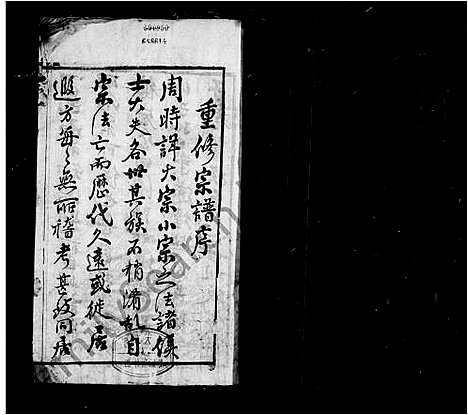 重修宗譜序
周時詳大宗小宗之法諸侯
士大夫各世其族不稍淆亂自
宗法亡而歷代久遠或徙居
遐方每每無所稽考甚致同居